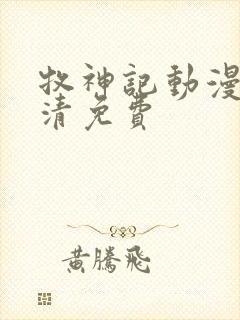 牧神記動漫
清免費
黃騰飛